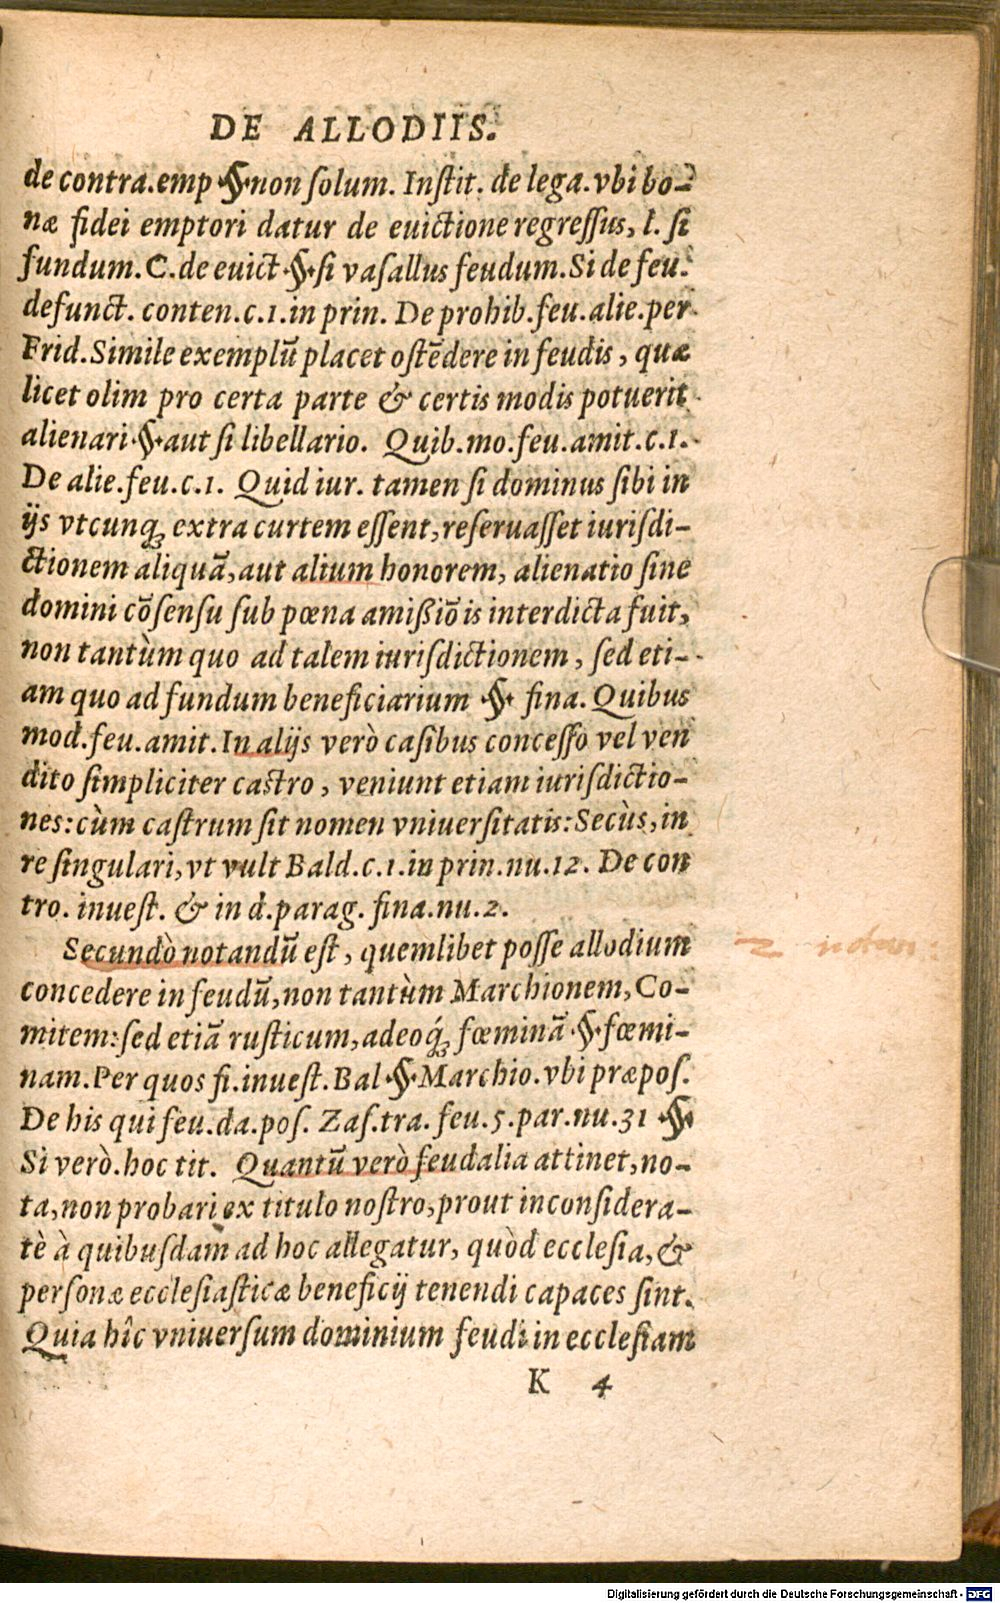 DE ALLODIIS.
de contra.emp §non ſolum. Inſtit. de lega.vbi bo-
næ fidei emptori datur de euictione regreſſus, l. ſi
fundum.C.de euict §ſi vaſallus feudum.Si de feu.
defunct. conten.c.1.in prin. De prohib.feu.alie.per
Frid.Simile exemplū placet oſtēdere in feudis, quæ
licet olim pro certa parte & certis modis potuerit
alienari §aut ſi libellario. Quib.mo.feu.amit.c.1.
De alie.feu.c.1. Quid iur. tamen ſi dominus ſibi in
ijs vtcunq́; extra curtem eſſent,reſeruaſſet iuriſdi-
ctionem aliquā,aut alium honorem, alienatio ſine
domini cōſenſu ſub pœna amißiōis interdicta fuit,
non tantùm quo ad talem iuriſdictionem, ſed eti-
am quo ad fundum beneficiarium § fina. Quibus
mod.feu.amit.In alijs verò caſibus conceſſo vel ven
dito ſimpliciter caſtro, veniunt etiam iuriſdictio-
nes:cùm caſtrum ſit nomen vniuerſitatis:Secùs,in
re ſingulari,vt vult Bald.c.1.in prin.nu.12. De con
tro. inueſt. & in d.parag. fina.nu.2.
Secundò notandū eſt, quemlibet poſſe allodium
concedere in feudū,non tantùm Marchionem,Co-
mitem:ſed etiā ruſticum,adeoq́; fœminā §fœmi-
nam.Per quos fi.inueſt.Bal §Marchio.vbi præpoſ.
De his qui feu.da.poſ. Zaſ.tra.feu.5.par.nu.31 §
Si verò.hoc tit. Quantū verò feudalia attinet,no-
ta,non probari ex titulo noſtro,prout inconſidera-
tè à quibuſdam ad hoc allegatur, quòd eccleſia,&
perſonæ eccleſiaſticæ beneficij tenendi capaces ſint.
Quia hîc vniuerſum dominium feudi in eccleſiam
K 4
Digitalisierung gefördert durch die Deutsche Forschungsgemeinschaft - DFG